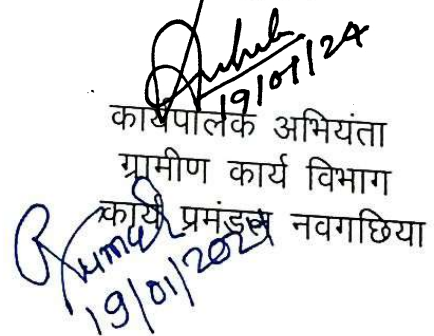 19/01/24
कार्यपालक अभियंता
ग्रामीण कार्य विभाग
कार्य प्रमंडल नवगछिया
19/01/2024